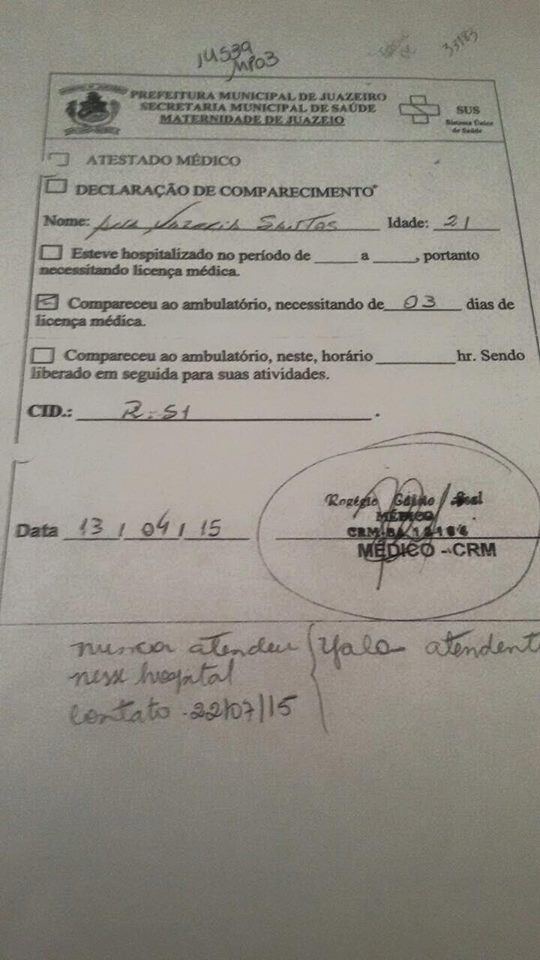 JUS39
MP03
33183
PREFEITURA MUNICIPAL DE JUAZEIRO
SECRETARIA MUNICIPAL DE SAÚDE
MATERNIDADE DE JUAZEIO
SUS
Sistema Único
de Saúde
ATESTADO MÉDICO
DECLARAÇÃO DE COMPARECIMENTO*
Nome: Santos Idade: 21
Esteve hospitalizado no período de ______ a ______, portanto
necessitando licença médica.
Compareceu ao ambulatório, necessitando de 03 dias de
licença médica.
Compareceu ao ambulatório, neste, horário _________ hr. Sendo
liberado em seguida para suas atividades.
CID.: R-51 .
Data 13 / 04 / 15
Rogério
MÉDICO
MÉDICO - CRM
nunca atendeu { Yala atendent
nesse hospital
contato - 22/07/15